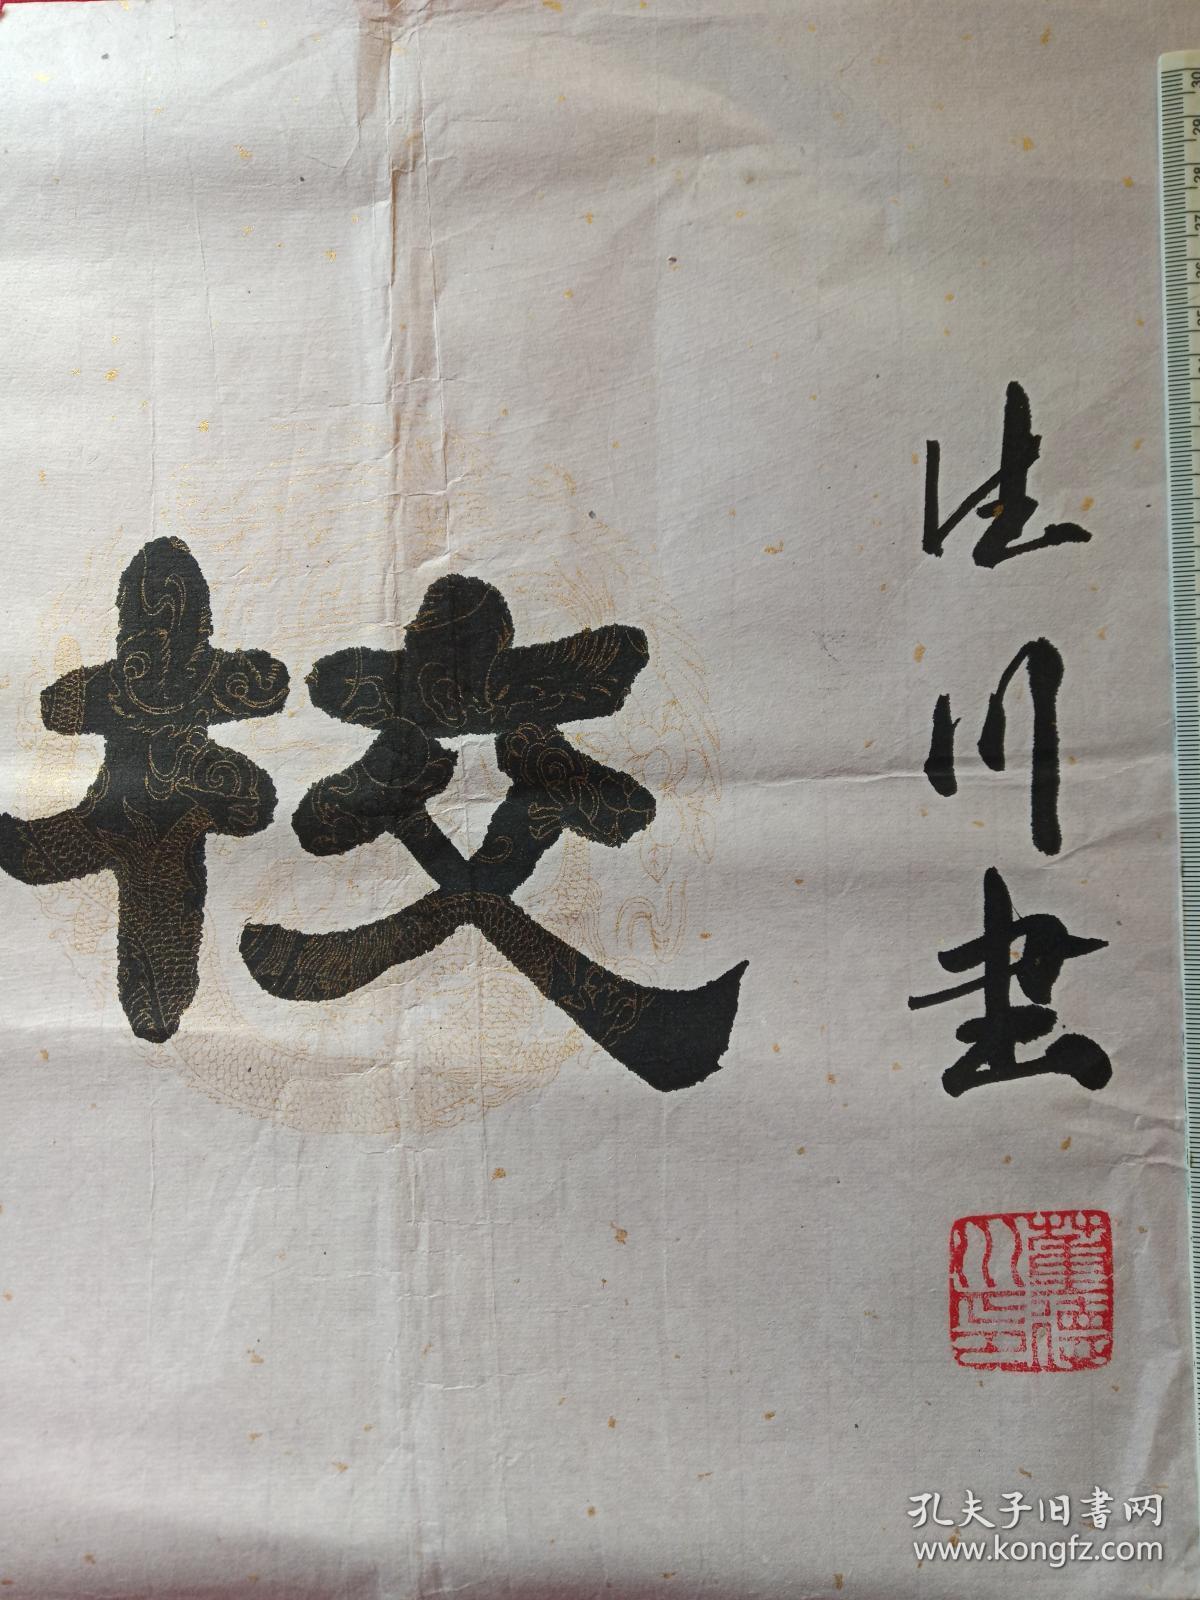 校
法川书
孔夫子旧书网
www.kongfz.com